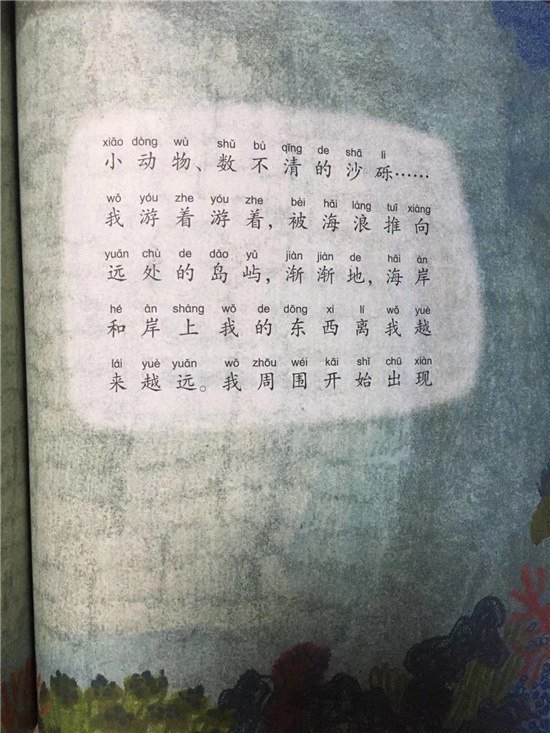 xiǎo dòng wù shǔ bù qīng de shā lì
小动物、数不清的沙砾……
wǒ yóu zhe yóu zhe bèi hǎi làng tuī xiàng
我游着游着，被海浪推向
yuǎn chù de dǎo yǔ jiàn jiàn de hǎi àn
远处的岛屿，渐渐地，海岸
hé àn shàng wǒ de dōng xi lí wǒ yuè
和岸上我的东西离我越
lái yuè yuǎn wǒ zhōu wéi kāi shǐ chū xiàn
来越远。我周围开始出现